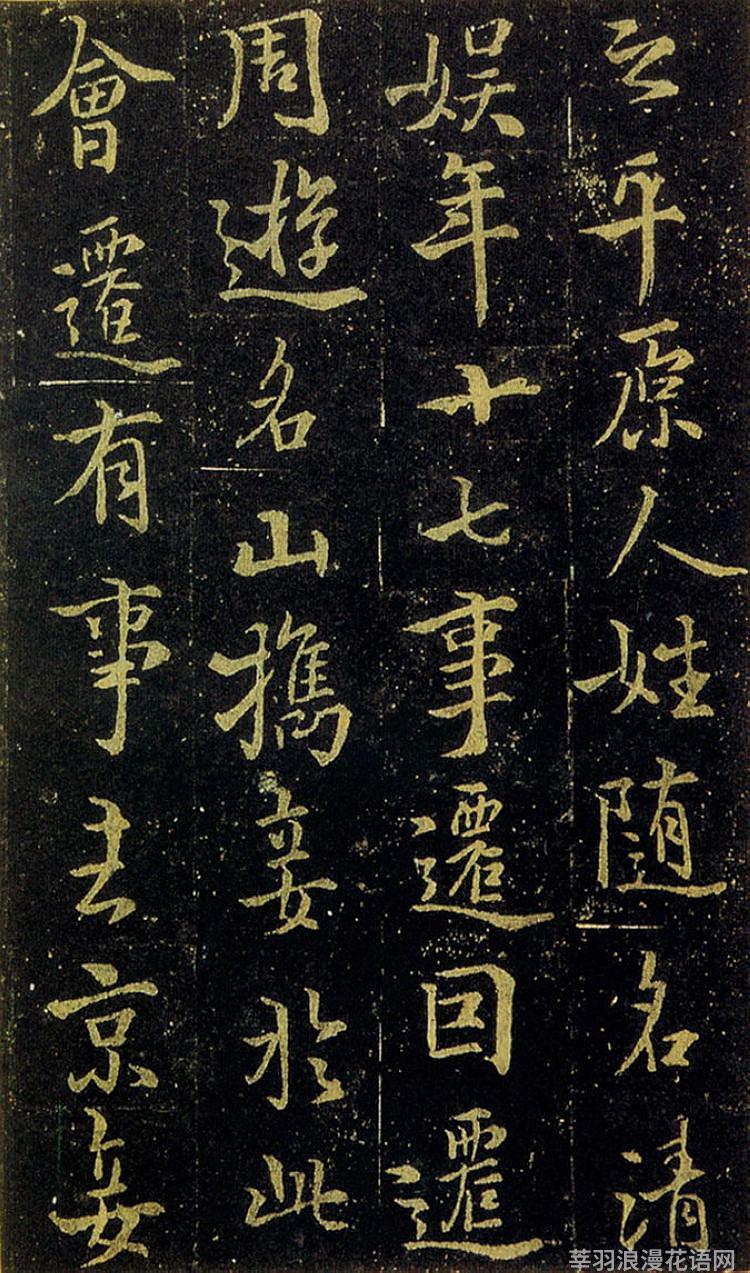 云平原人姓随名清
娱年十七事遷因遷
周遊名山攜妾於此
會遷有事去京妾
莘羽浪漫花语网